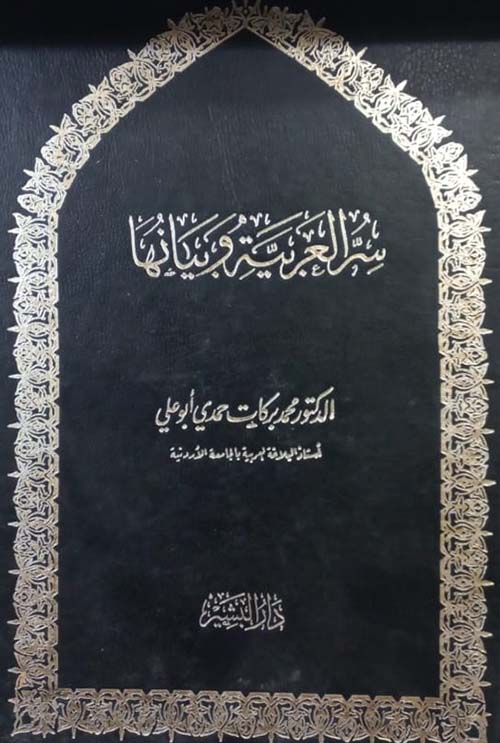 سِرُّ العَرَبِيَّةِ وَبَيَانُهَا
الدكتور محمد بركات حمدي أبو علي
أستاذ البلاغة العربية بالجامعة الأردنية
دَارُ البَشِيْر